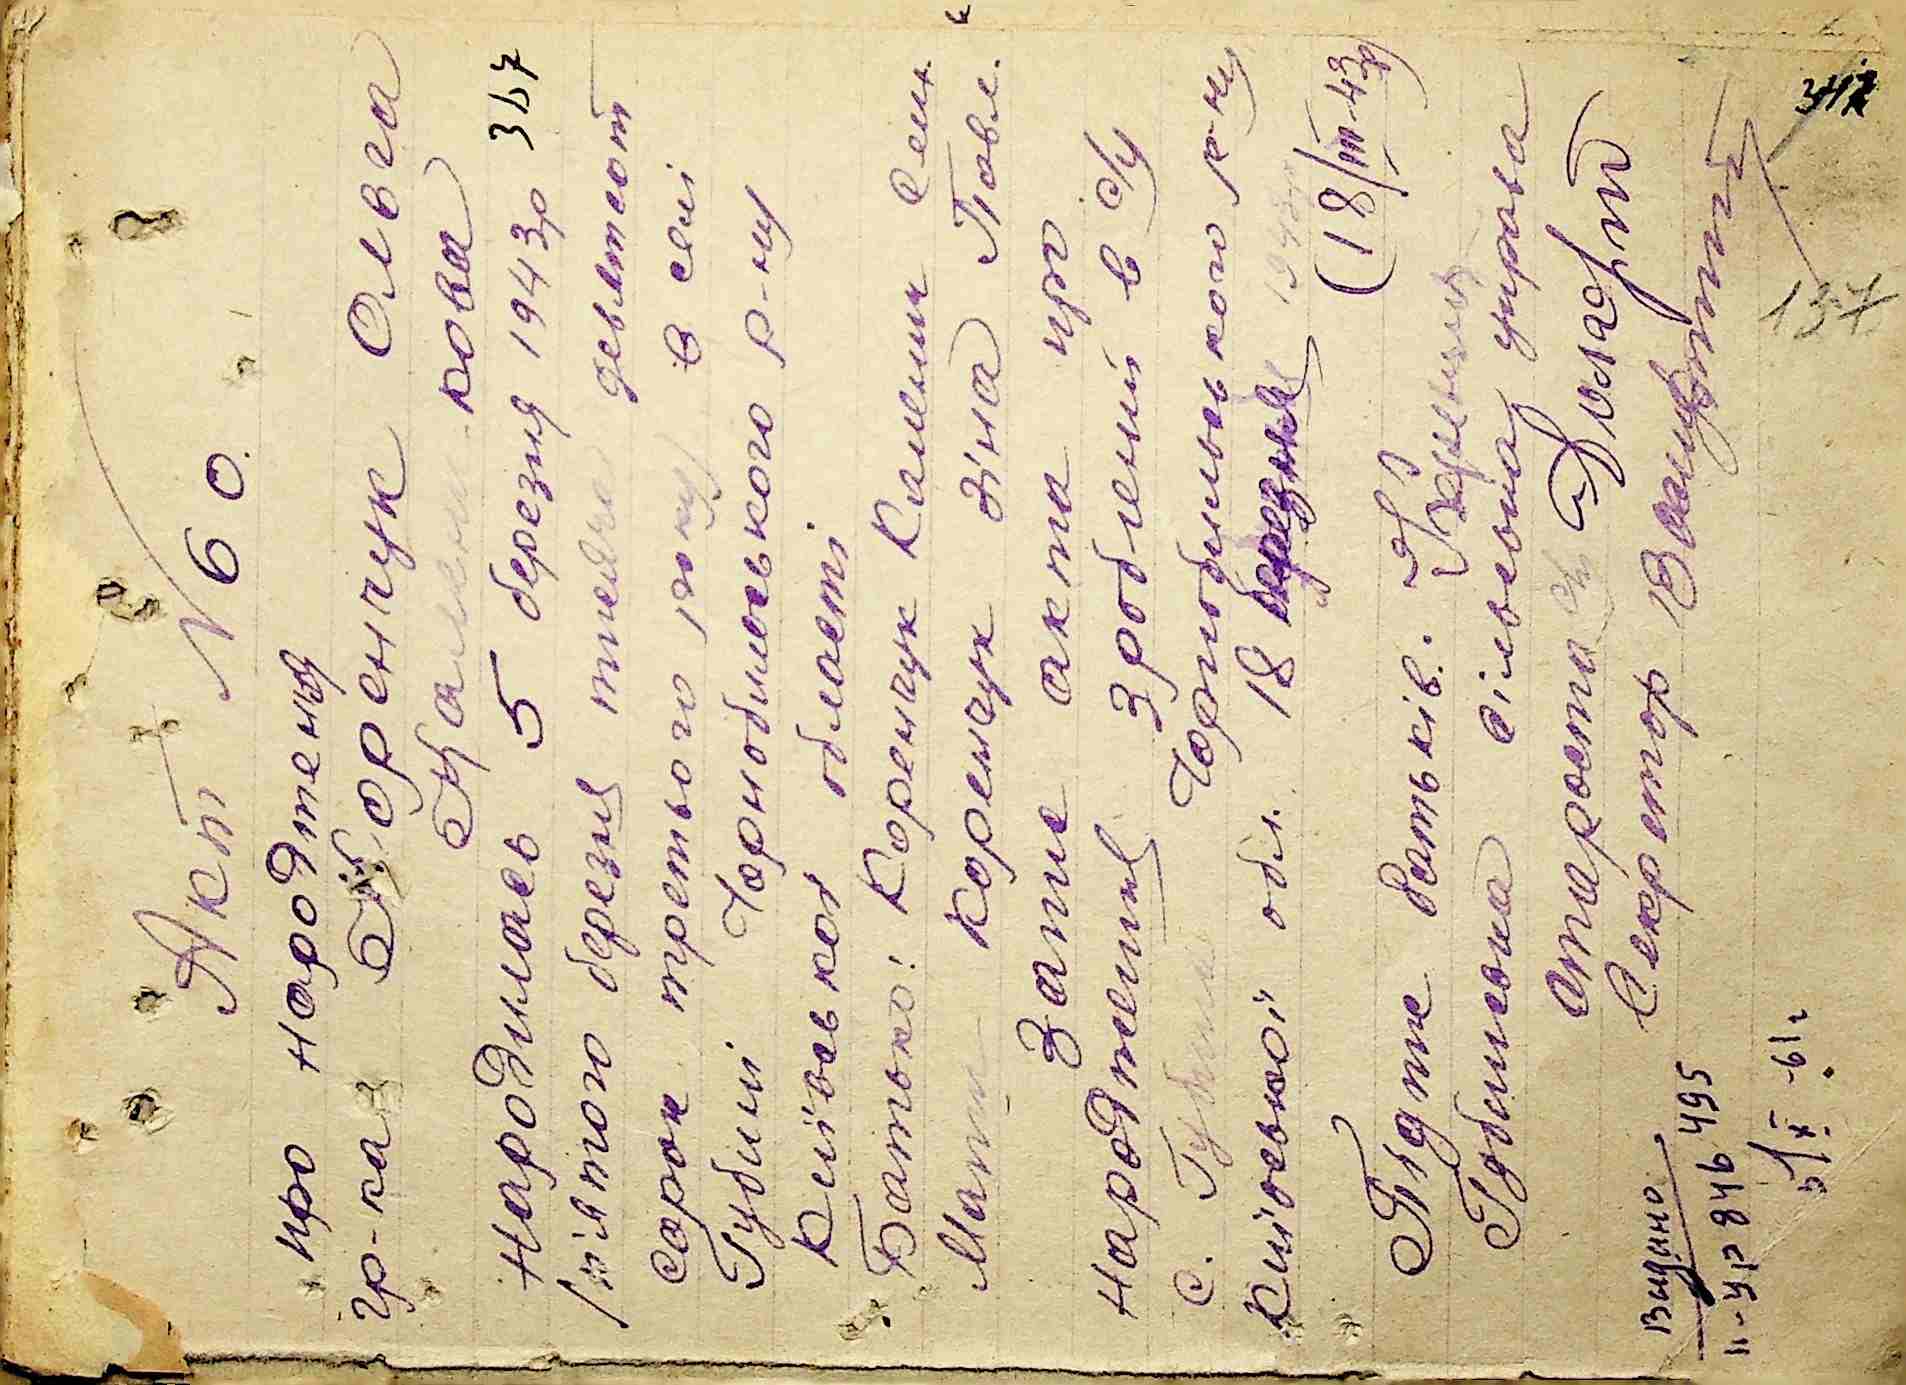 Акт N 60.
про народження
гр-ка Коренчук Ольга
народилась 5 березня 1943р
/п'ятого березня тисяча девятсот
сорок третього року/ в селі
Губині Чорнобильського р-ну
Київської області
Батько: Коренчук Каленик Сем.
Мати Коренчук Зіна Павл.
Запис акта про
народження зроблений в с/у
с. Губині Чорнобильського р-ну
Київської обл. 18 березня 1943р
(18/III-43р)
Підпис батьків:
Губинська сільська управа
Староста
Секретар
Видано
II-УР 846495
5/X-61г
137
347